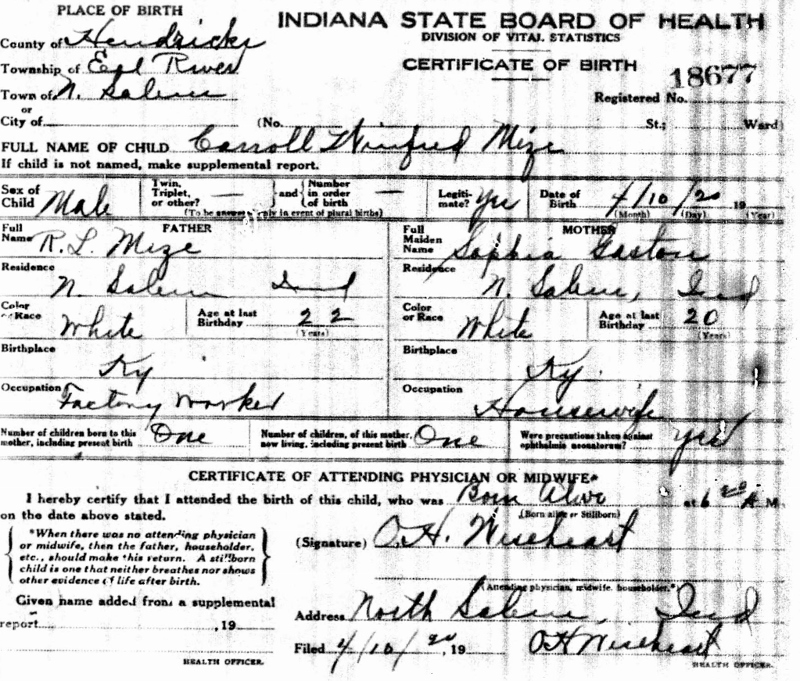 PLACE OF BIRTH
INDIANA STATE BOARD OF HEALTH
DIVISION OF VITAL STATISTICS
CERTIFICATE OF BIRTH
County of Hendricks
Township of Eel River
Town of N. Salem
or
City of
18677
Registered No.
(No. St.; Ward)
FULL NAME OF CHILD Carroll Winfred Mize
If child is not named, make supplemental report.
Sex of Child Male
Twin, Triplet, or other? —
and
Number in order of birth —
(To be answered only in event of plural births)
Legitimate? Yes
Date of Birth 4/10/20 19
(Month) (Day) (Year)
FATHER
Full Name R. L. Mize
Residence N. Salem Ind
Color or Race White
Age at last Birthday 22
(Years)
Birthplace Ky
Occupation Factory Worker
MOTHER
Full Maiden Name Sophia Gaston
Residence N. Salem, Ind
Color or Race White
Age at last Birthday 20
(Years)
Birthplace Ky.
Occupation Housewife
Number of children born to this mother, including present birth One
Number of children, of this mother, now living, including present birth One
Were precautions taken against ophthalmia neonatorum? Yes
CERTIFICATE OF ATTENDING PHYSICIAN OR MIDWIFE*
I hereby certify that I attended the birth of this child, who was Born Alive at 6 20 A M.
(Born alive or Stillborn)
on the date above stated.
*When there was no attending physician
or midwife, then the father, householder,
etc., should make this return. A stillborn
child is one that neither breathes nor shows
other evidence of life after birth.
(Signature) O. H. Wiseheart
(Attending physician, midwife, householder.*)
Given name added from a supplemental
report ,19
Address North Salem, Ind
Filed 4/10/20, 19 OH Wiseheart
HEALTH OFFICER.
HEALTH OFFICER.